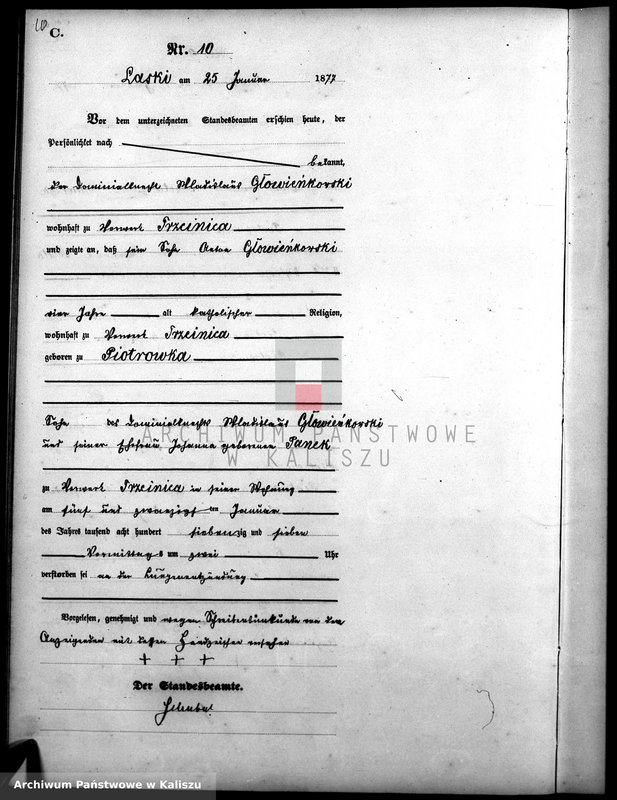 10
C.
Nr. 10
Laski am 25 Januar 1877
Vor dem unterzeichneten Standesbeamten erschien heute, der
Persönlichkeit nach
bekannt,
der Dominialknecht Wladislaus Głowieńkowski
wohnhaft zu Vorwerk Trzcinica
und zeigte an, daß sein Sohn Anton Głowieńkowski
vier Jahre alt katholischer Religion,
wohnhaft zu Vorwerk Trzcinica
geboren zu Piotrowka
Sohn des Dominialknechts Wladislaus Głowieńkowski
und seiner Ehefrau Johanna geborenen Panek
ARCHIWUM PAŃSTWOWE
W KALISZU
zu Vorwerk Trzcinica in seiner Wohnung
am fünf und zwanzigsten Januar
des Jahres tausend acht hundert siebenzig und sieben
Vormittags um zwei Uhr
verstorben sei an der Lungenentzündung
Vorgelesen, genehmigt und wegen Schreibensunkunde von dem
Anzeigenden mit dessen Handzeichen versehen
+ + +
Der Standesbeamte.
Archiwum Państwowe w Kaliszu